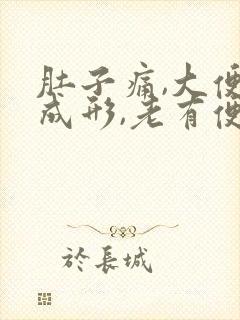 肚子痛,大便
成形,老有便
於長城